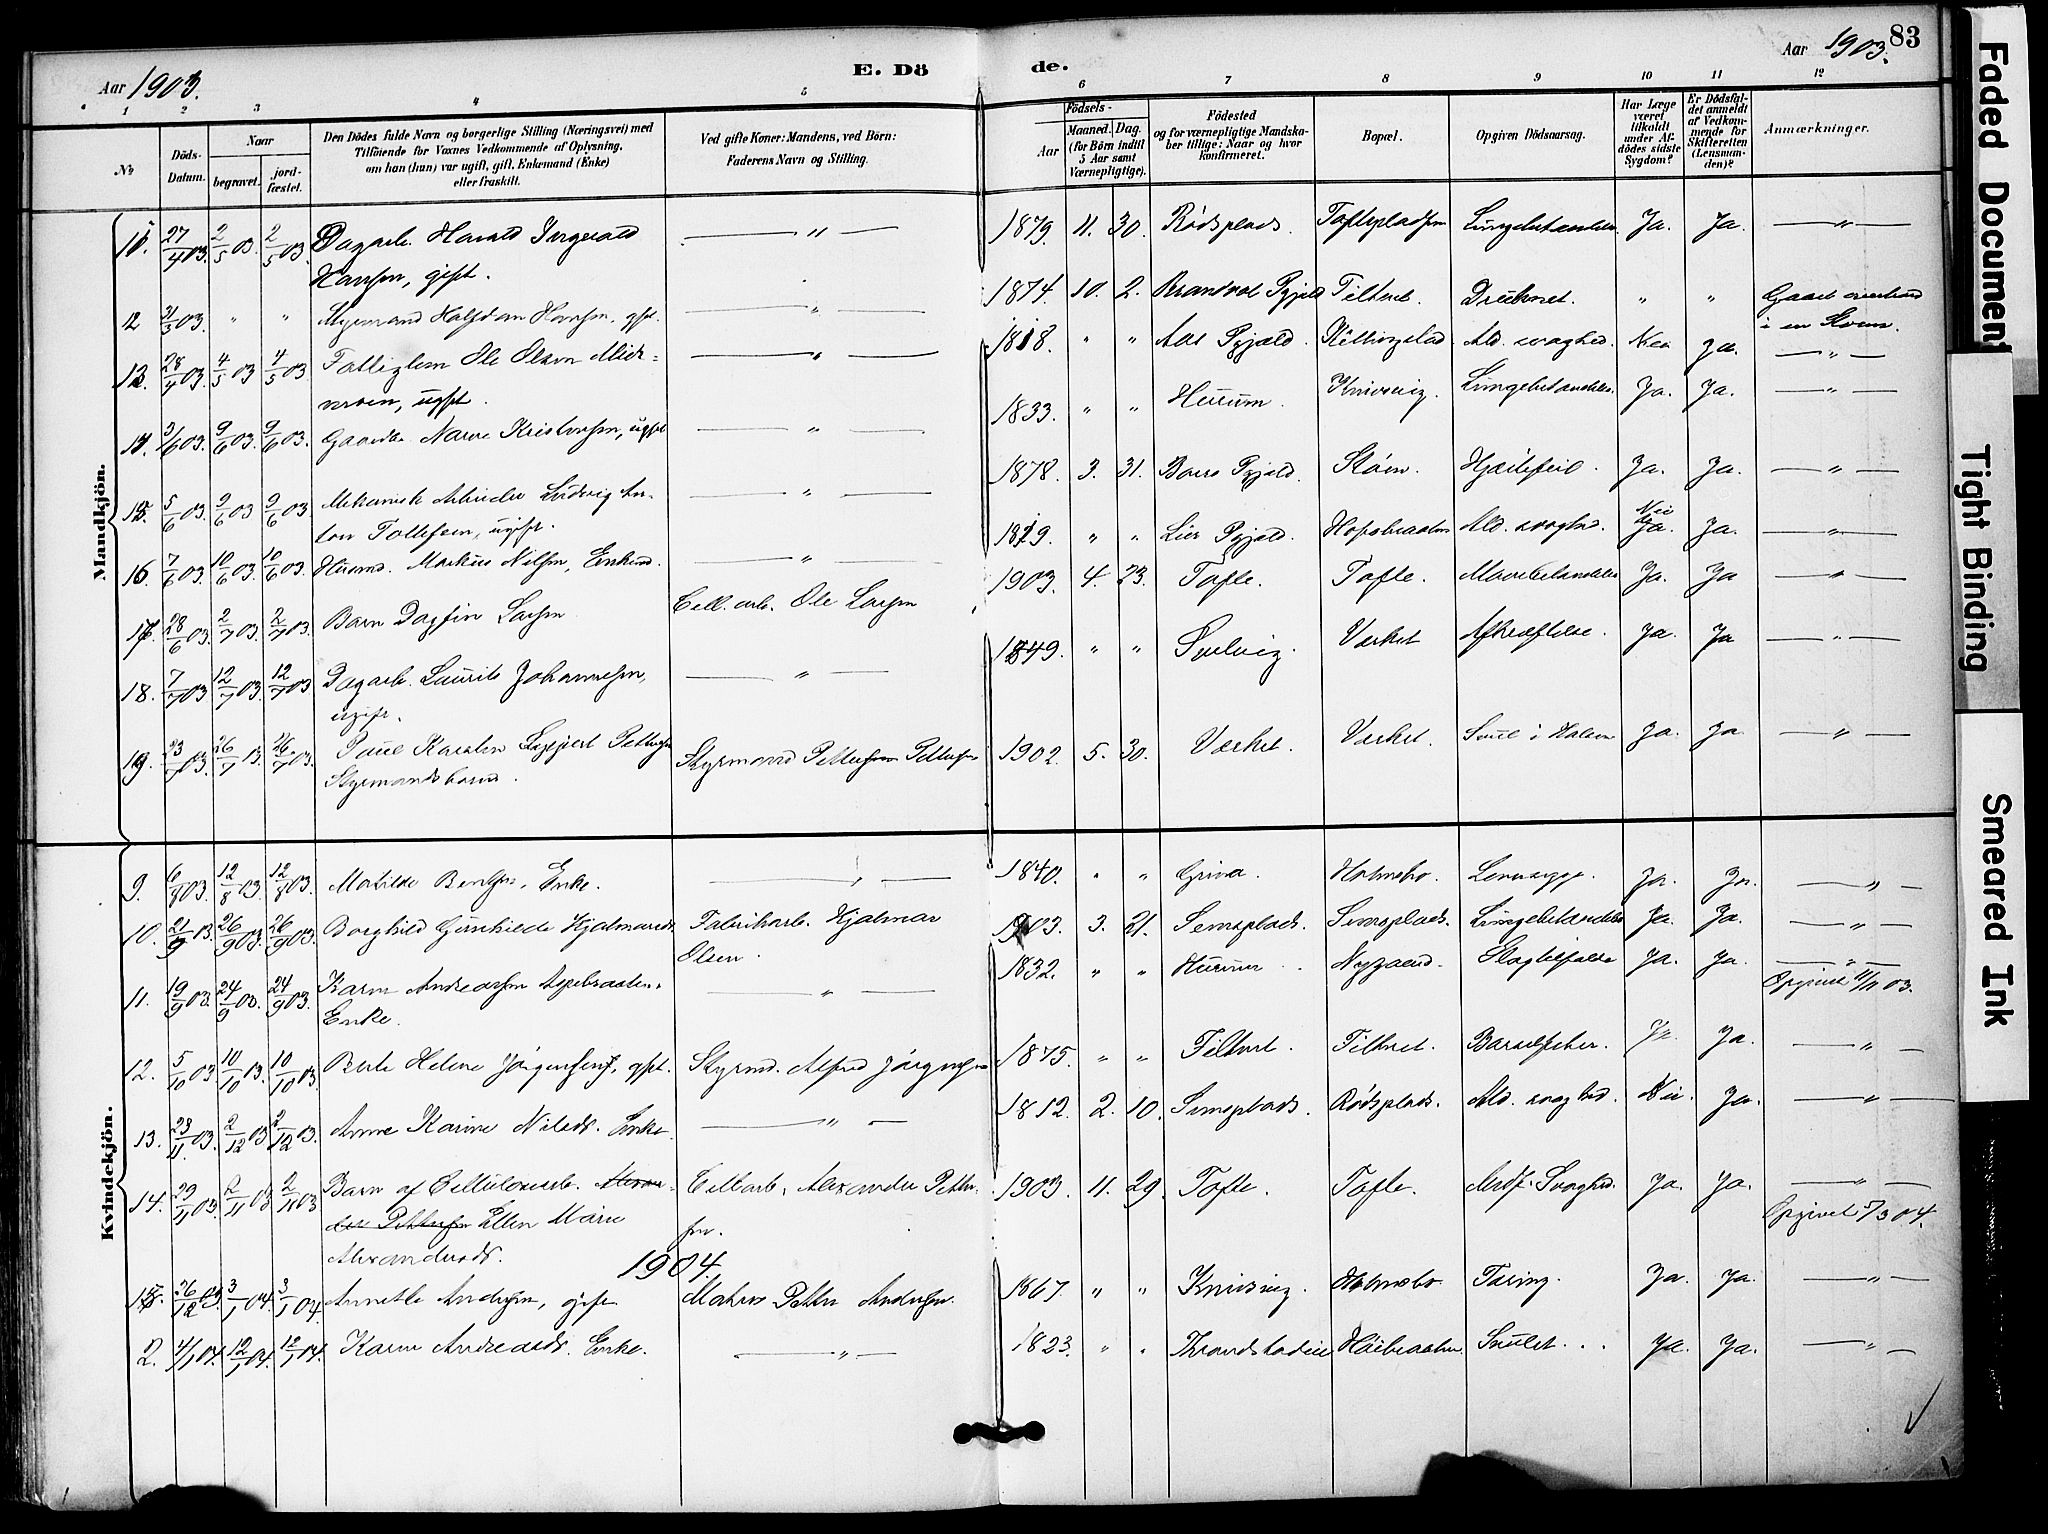 83
Aar 1903.
E. Dö de.
Aar 1903.
1 2 3 4 5 6 7 8 9 10 11 12
No
Döds-Datum.
Naar
begravet.
jordfæstet.
Den Dödes fulde Navn og borgerlige Stilling (Næringsvei) med
Tilföiende for Voxnes Vedkommende af Oplysning,
om han (hun) var ugift, gift, Enkemand (Enke)
eller fraskilt.
Ved gifte Koner: Mandens, ved Börn:
Faderens Navn og Stilling.
Födsels-
Aar
Maaned. Dag.
(for Börn indtil
5 Aar samt
Værnepligtige).
Födested
og for værnepligtige Mandska-
ber tillige: Naar og hvor
konfirmeret.
Bopæl.
Opgiven Dödsaarsag.
Har Læge
været
tilkaldt
under Af-
dödes sidste
Sygdom?
Er Dödsfal-
det anmeldt
af Vedkom-
mende for
Skifteretten
(Lensman-
den)?
Anmærkninger.
Mandkjön.
11. 27/4 03. 2/5 03 2/5 03. Dagarb. Harald Ingvald — " — 1879. 11. 30. Rödsplads. Tofteplads Lungebetændelse. Ja. Ja. — " —
Hansen, gift.
12 03. " " Styrmand Halfdan Hansen, gft. — " — 1874. 10. 2. Prgjeld Filtvet. Druknet. " " Gaaet overbord
i en Storm.
13. 28/4 03. 4/5 03 4/5 03. Fattiglem Ole Olsen — " — 1818. " " Prgjeld. Ald. svaghed. Nei ja. — " —
ugift.
14. 3/6 03. 9/6 03. 9/6 03. Narve Kristensen, ugift — " — 1833. " " Hurum. Knivsvig. Lungebetændelse. Ja. Ja. — " —
15. 5/6 03. 9/6 03 9/6 03 Mekanisk Arbeider Ludvig An- — " — 1878. 3. 31. Prgjeld. Støen. Hjertefeil. Ja. Ja. — " —
ton Tollefsen, ugift.
16. 7/6 03. 10/6 03. 10/6 03. Husmd. Markus Nilsen, Enkemd. — " — 1819. " " Lier Prgjeld. Ald. svaghed. Nei Ja. Ja. — " —
17. 28/6 03. 2/7 03. 2/7 03. Barn Dagfin Larsen Cell. arb. Ole Larsen 1903. 4. 23. Tofte. Tofte. Mavebetændelse Ja. Ja — " —
18. 7/7 03. 12/7 03. 12/7 03 Dagarb. Laurits Johannesen, — " — 1849. " " Selvig. Værket Afkræftelse. Ja. Ja — " —
ugift.
19. 23/7 03. 26/7 03. 26/7 03. Paul Karsten Pettersen Styrmand Pettersen 1902. 5. 30. Værket. Værket. i Halsen Ja. Ja. — " —
Styrmandsbarn.
Kvindekjön.
9. 6/8 03. 12/8 03. 12/8 03. Mathilde Bentsen, Enke. — " — 1840. " " Griva Holmsbo. Ja. Ja. — " —
10. 21/9 03. 26/9 03. 26/9 03. Borghild Gunhilde Hjalmarsd. Fabrikarb. Hjalmar 1903. 3. 21. Semsplads. Semsplads. Lungebetændelse Ja. Ja. — " —
Olsen.
11. 19/9 03. 24/9 03. 24/9 03. Karen Andreassen Aspebraaten. — " — 1832. " " Hurum. Nygaard. Slagtilfælde Ja. Ja. — " —
Enke. Opgivet 11/11 03.
12. 5/10 03. 10/10 03. 10/10 03. Berte Helene Jörgensen, gift. Styrmd. Alfred Jörgensen 1875. " " Filtvet. Filtvet. Barselfeber. Ja Ja. — " —
13. 23/11 03. 2/12 03 2/12 03. Anne Karine Nilsdr. Enke. — " — 1812. 2. 10. Semsplads. Rödsplads. Ald. svaghed. Nei Ja. — " —
14. 29/11 03. 2/11 03 2/11 03 Barn af Cellulosearb. Alexan- Cellarb. Alexander Petter- 1903. 11. 29. Tofte. Tofte. Medf. Svaghed. Ja. Ja. — " —
der Pettersen Ellen Marie sen. Opgivet 5/3 04.
Alexandersdr.
1904.
15. 26/12 03. 3/1 04. 3/1 04 Annette Andersen, gift Matros Petter Andersen. 1867. " " Knivsvig. Holmsbo. Tæring. Ja. Ja. — " —
2. 4/1 04. 12/1 04. 12/1 04. Karen Andreasdr. Enke. — " — 1823. " " Høibraaten. Ja. Ja. — " —
Faded Document
Tight Binding
Smeared Ink